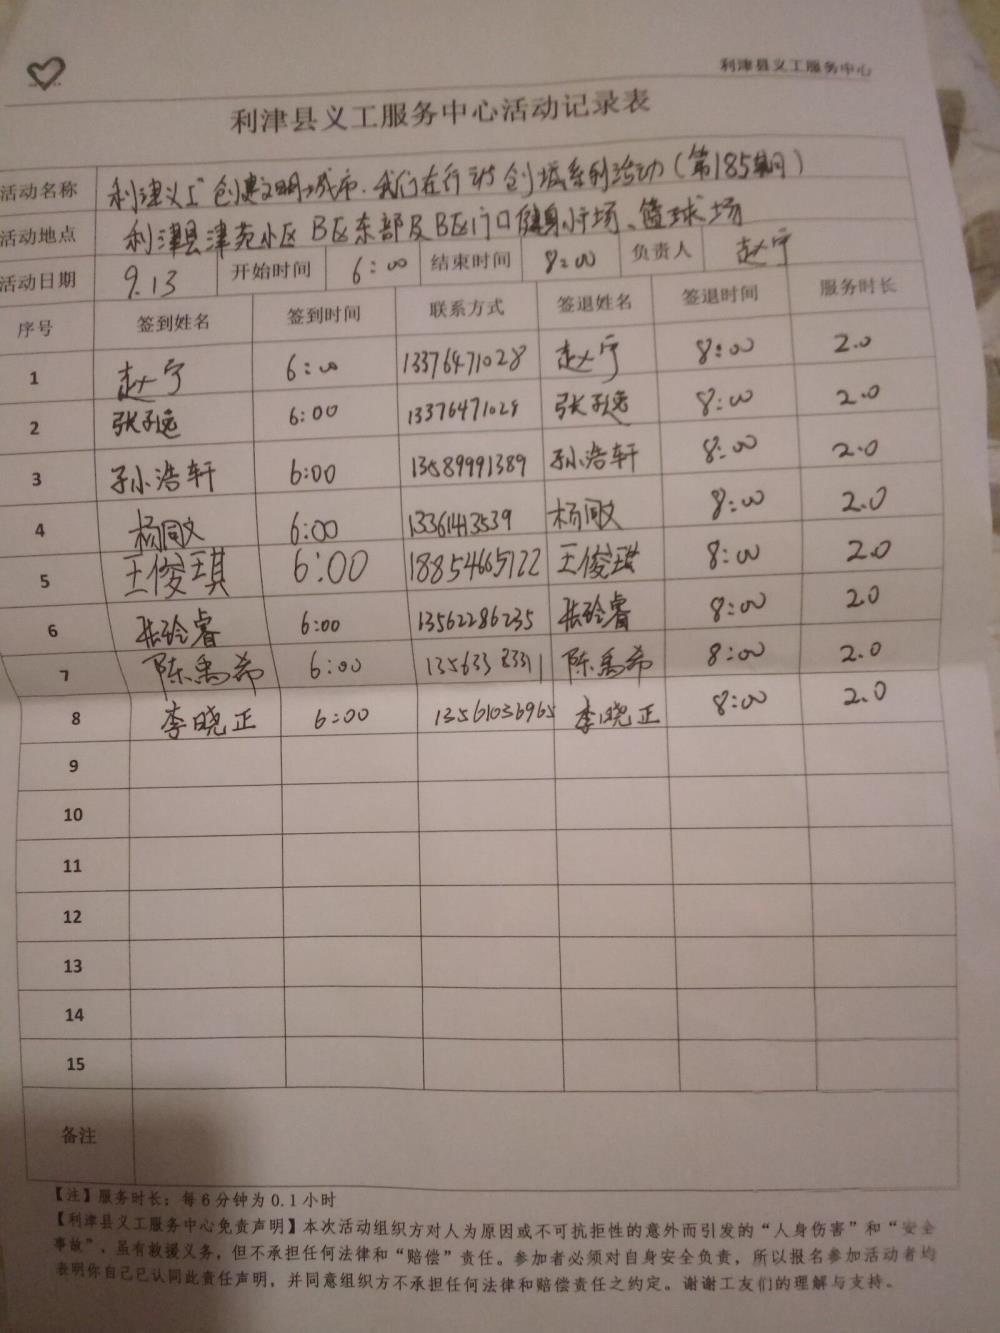 利津县义工服务中心
利津县义工服务中心活动记录表
活动名称 利津义工"创建文明城市,我们在行动"创城系列活动(第185期)
活动地点 利津县津苑小区B区东部及B区门口健身广场、篮球场
活动日期 9.13 开始时间 6:00 结束时间 8:00 负责人 赵宁
序号 签到姓名 签到时间 联系方式 签退姓名 签退时间 服务时长
1 赵宁 6:00 13376471028 赵宁 8:00 2.0
2 张子逸 6:00 13376471029 张子逸 8:00 2.0
3 孙浩轩 6:00 13589991389 孙浩轩 8:00 2.0
4 杨同文 6:00 13361413539 杨同文 8:00 2.0
5 王俊琪 6:00 18854665722 王俊琪 8:00 2.0
6 张玲睿 6:00 13562286235 张玲睿 8:00 2.0
7 陈禹希 6:00 陈禹希 8:00 2.0
8 李晓正 6:00 13561036965 李晓正 8:00 2.0
9
10
11
12
13
14
15
备注
【注】服务时长:每6分钟为0.1小时
【利津县义工服务中心免责声明】本次活动组织方对人为原因或不可抗拒性的意外而引发的“人身伤害”和“安全
事故”,虽有救援义务,但不承担任何法律和“赔偿”责任。参加者必须对自身安全负责,所以报名参加活动者均
表明你自己已认同此责任声明,并同意组织方不承担任何法律和赔偿责任之约定。谢谢工友们的理解与支持。